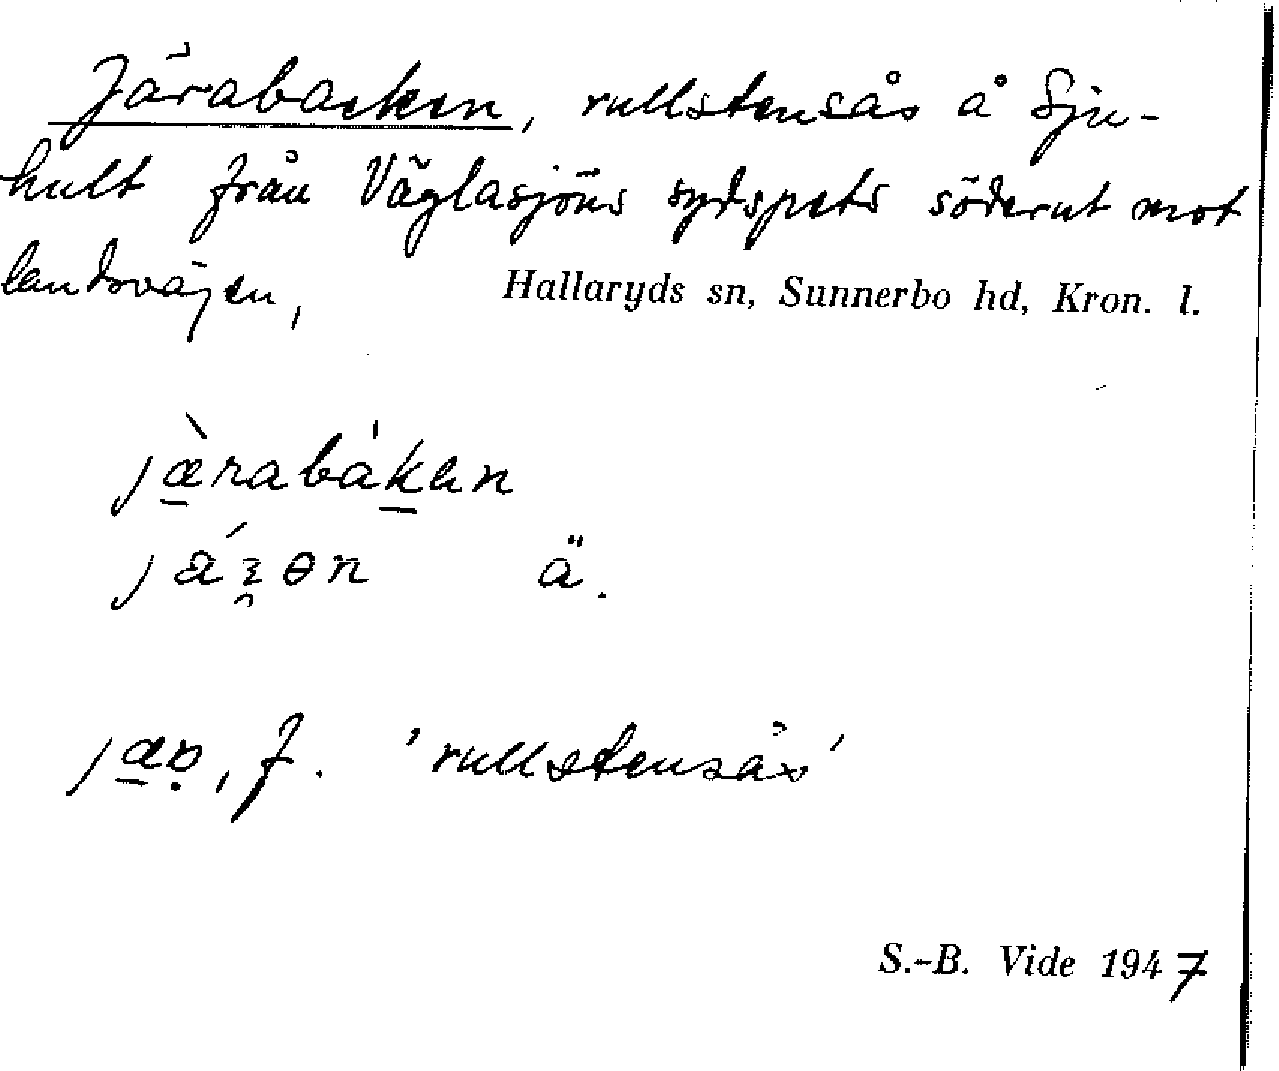 Järabacken, rullstensås å Sju-
hult från Väglasjöns sydspets söderut mot
landsvägen,
Hallaryds sn, Sunnerbo hd, Kron. l.
jæ̀rabákan
ä.
f. 'rullstensås'
S.-B. Vide 1947